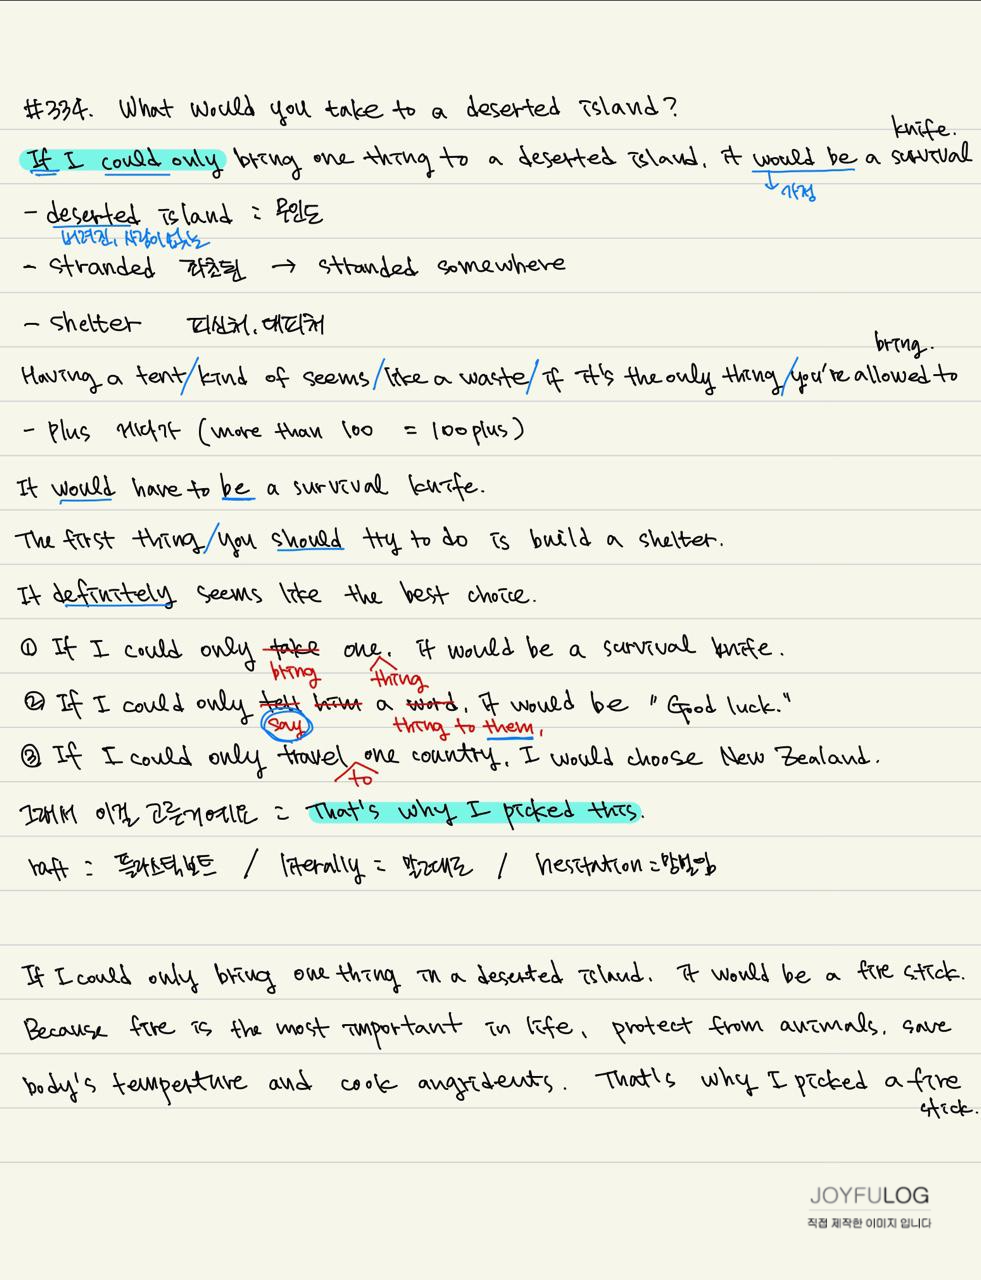 #334. What would you take to a deserted island?
If I could only bring one thing to a deserted island, it would be a survival knife.
↓가정
- deserted island : 무인도
버려진, 사람이 없는
- stranded 좌초된 → stranded somewhere
- shelter 피신처, 대피처
Having a tent/kind of seems/like a waste/if it's the only thing/you're allowed to bring.
- Plus 게다가 (more than 100 = 100 plus)
It would have to be a survival knife.
The first thing/you should try to do is build a shelter.
It definitely seems like the best choice.
① If I could only take one, it would be a survival knife.
bring thing
② If I could only tell him a word, it would be "Good luck."
say thing to them,
③ If I could only travel one country, I would choose New Zealand.
to
그래서 이걸 고른거예요 = That's why I picked this.
raft : 플라스틱보트 / literally = 말그대로 / hesitation = 망설임
If I could only bring one thing in a deserted island, it would be a fire stick.
Because fire is the most important in life, protect from animals, save
body's temperture and cook angridents. That's why I picked a fire
stick.
JOYFULOG
직접 제작한 이미지 입니다